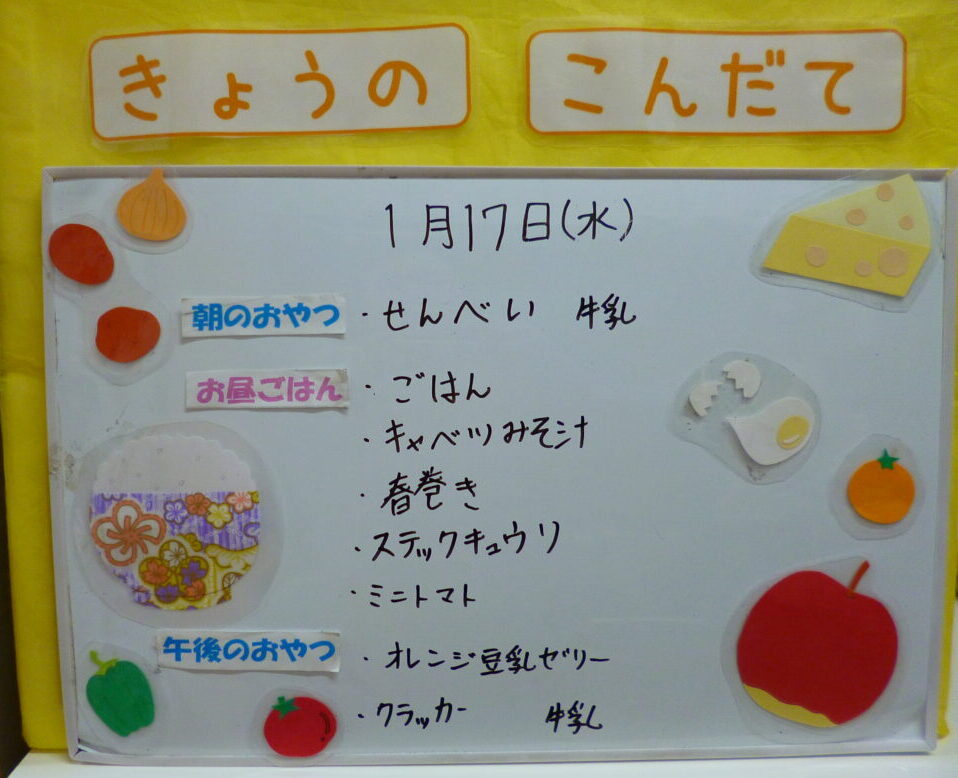 きょうの こんだて
1月17日(水)
朝のおやつ ・せんべい 牛乳
お昼ごはん ・ごはん
・キャベツみそ汁
・春巻き
・スティックキュウリ
・ミニトマト
午後のおやつ ・オレンジ豆乳ゼリー
・クラッカー 牛乳